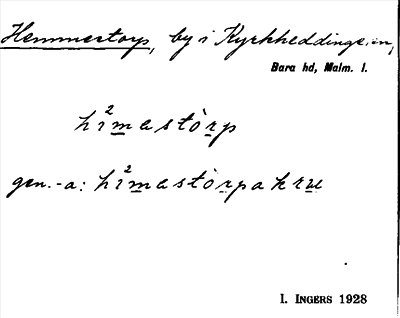 Hemmestorp, by i Kyrkheddinge sn,
Bara hd, Malm. l.
hi²mastòrp
gen. -a: hi²mastòrpakru
I. INGERS 1928